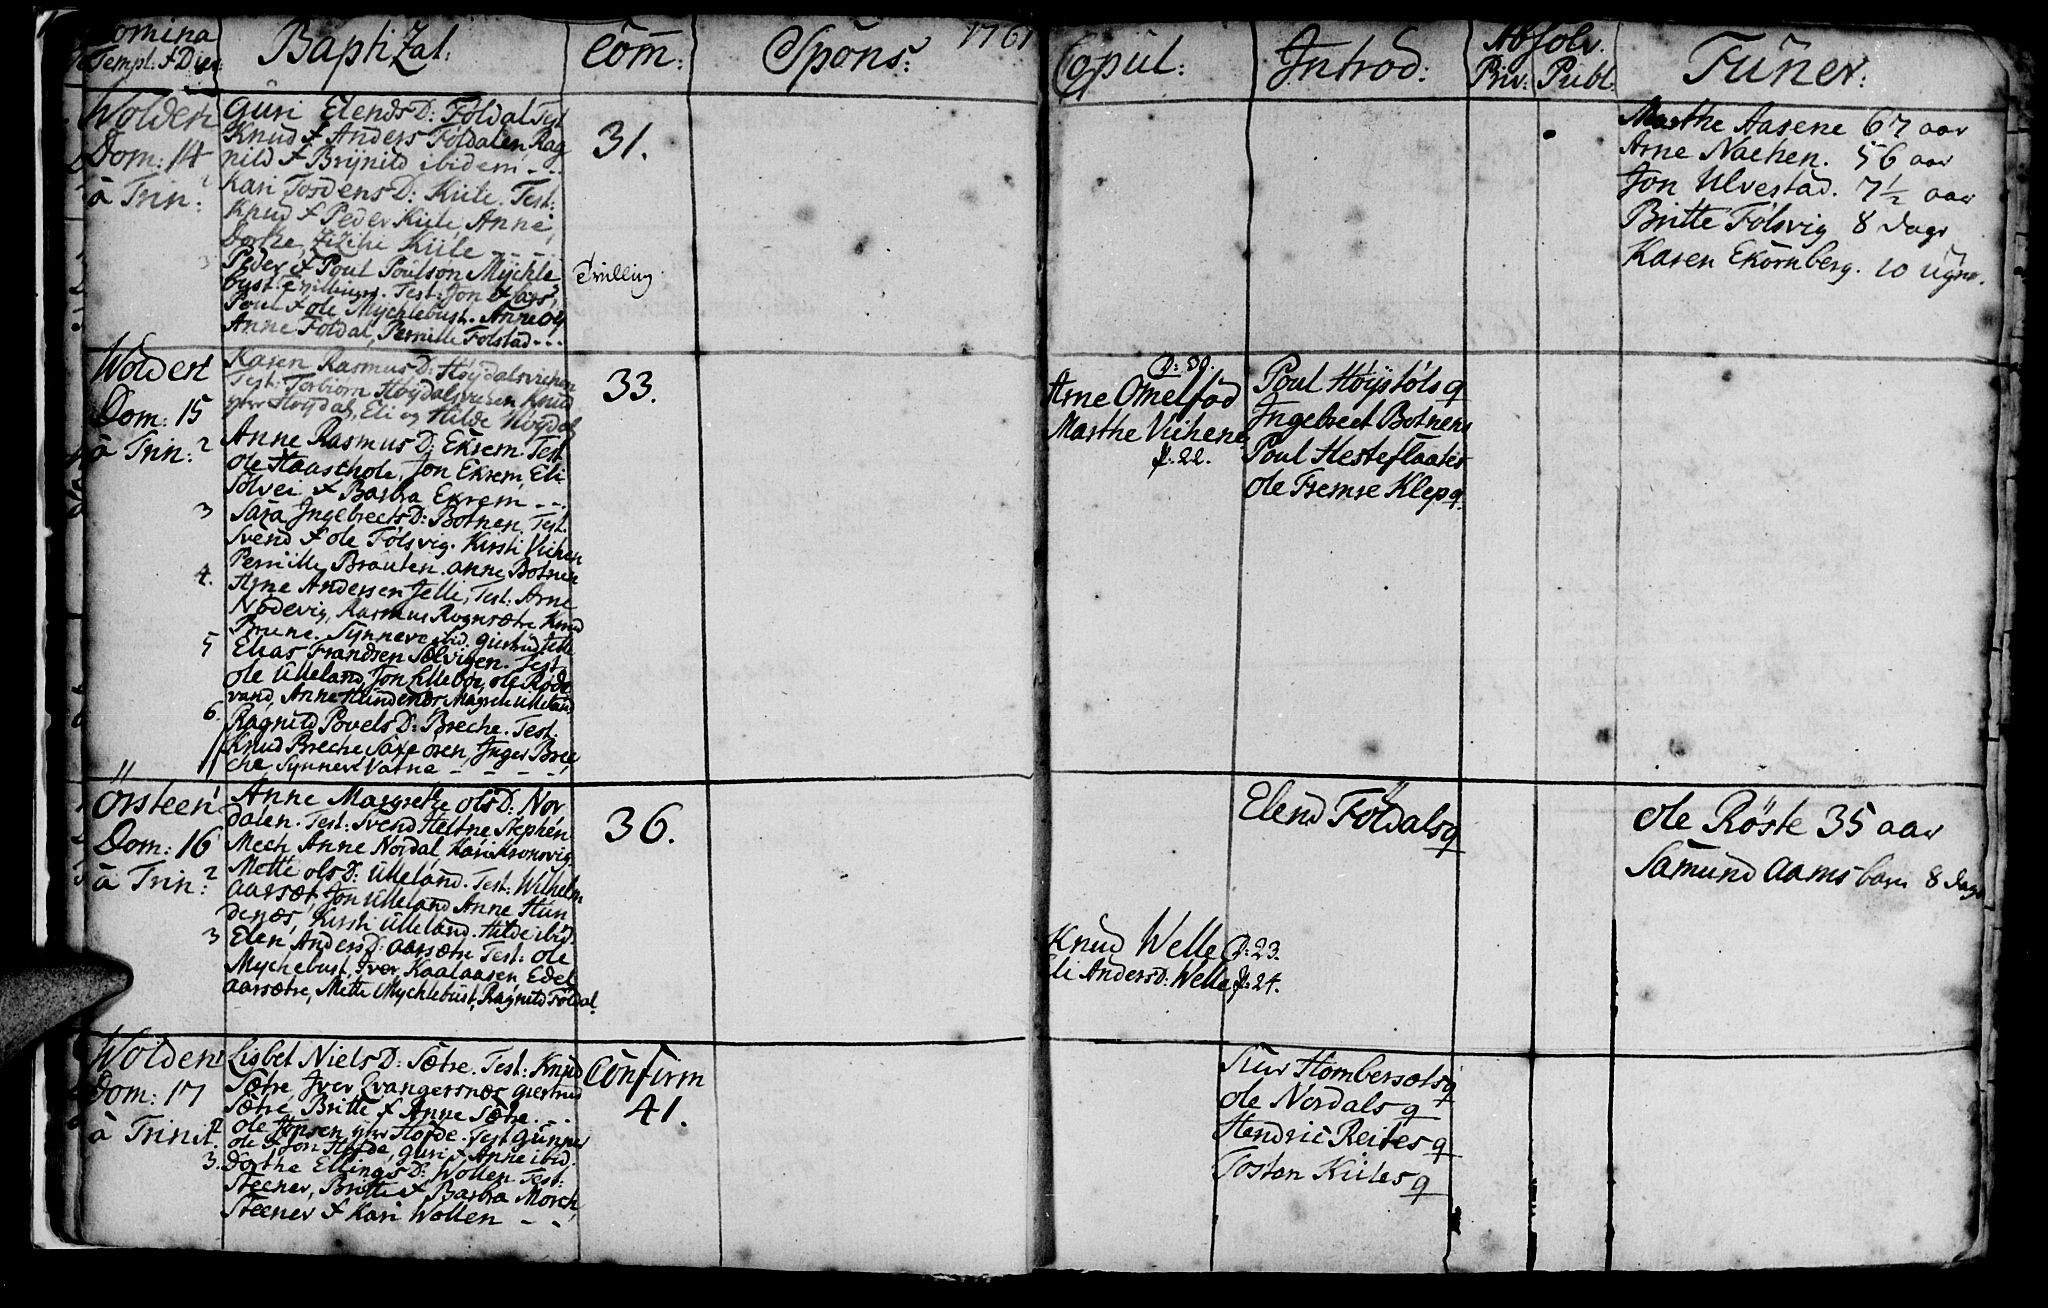 Nomina
Templ: & Dier:
Baptizat:
Com̄:
Spons:
1761
Copul:
Introd:
Absolv.
Priv: Publ.
Funer:
Wolden
Dom: 14
à Trin:
Guri Elends D: Foldal Test
Knud & Anders Foldalen, Rag
nild & Brynild ibidem - - -
Kari Tosdens D: Kiile. Test:
Knud & Peder Kiile, Anne,
Dorthe, Zizilie Kiile - - -
Peder & Poul Poulson Mychle
bust. Tvillinger. Test: Jon & Lars,
Poul & Ole Mychlebust. Anne og
Anne Foldal, Pernille Folstad - - -
31.
Tvilling
Marthe Aasene 67 aar
Arne Nachen. 56 aar
Jon Ulvestad. 7½ aar
Britte Folsvig 8 dage
Karen Ekornberg. 10 ugur.
Wolden
Dom: 15
à Trin:
Karen Rasmus D: Höydalsvichen
Test: Torbiorn Höydalsvichen Knud
Höydal, Eli og Hilde Höydal
Anne Rasmus D: Ekrem. Test
Ole Haaschole, Jon Ekrem, Eli
Solvei & Barbra Ekrem - - -
3 Sara Ingebrects D: Botnen, Test.
Svend & Ole Folsvig. Kirsti Vichen
Pernille Brauten. Anne Botnen
4. Arne Andersen Jelle, Test. Arne
Nodevig, Rasmus Rognsætre Knud
Brune. Synneve ibid. Giertrud Jelle
5 Elias Frandsen Solvigen. Test
Ole Ulleland, Jon Lillebøe, Ole Rode
vand, Anne Hundenæs Magreth Ulleland
6. Ragnild Povels D: Breche. Test.
Knud Breche Saxe Osen, Inger Bre
che Synneve Vatne - - - -
33.
D: 30.
Arne Omelfod
Marthe Vichene
P: 22.
Poul Höystöls q
Ingebrect Botnens
Poul Hesteflaates
Ole Fremre Klep q.
Örsteen
Dom: 16
à Trin:
Anne Margrethe Ols D: Nor
dalen. Test: Svend Heltne Stephen
Mech Anne Nordal, Kari Kronsvig
Mette Ols D: Ulleland. Test: Wilhelm
Aarsæt, Jon Ulleland Anne Hun
denæs, Kirsti Ulleland. Hilde ibid.
3 Elen Anders D: Aarsætre Test: Ole
Mychebust, Iver Kaalaasen Edel
Aarsætre, Mette Mychlebust, Ragnild Foldal.
36.
Elend Földals q
Ole Röste 35 aar
Samund Aams barn 8 dage
Knud Welle D: 23.
Eli Anders D: Welle P: 24.
Wolden
Dom: 17
à Trinit.
Lisbet Niels D: Sætre. Test: Knud
Sætre, Iver Qvangersnæs Giertrud
Sætre, Britte & Anne Sætre - - -
Ole Jonsen ytr Hofde. Test Gunner
Ole & Jon Hofde, Guri & Anne ibid.
3. Dorthe Ellings D: Wollen. Test:
Steener, Britte & Barbra Morch,
Steener & Kari Wollen - - -
Confirm
41.
Siur Hombersæts q
Ole Nordals q
Hendric Reites q
Tostan Kiiles q